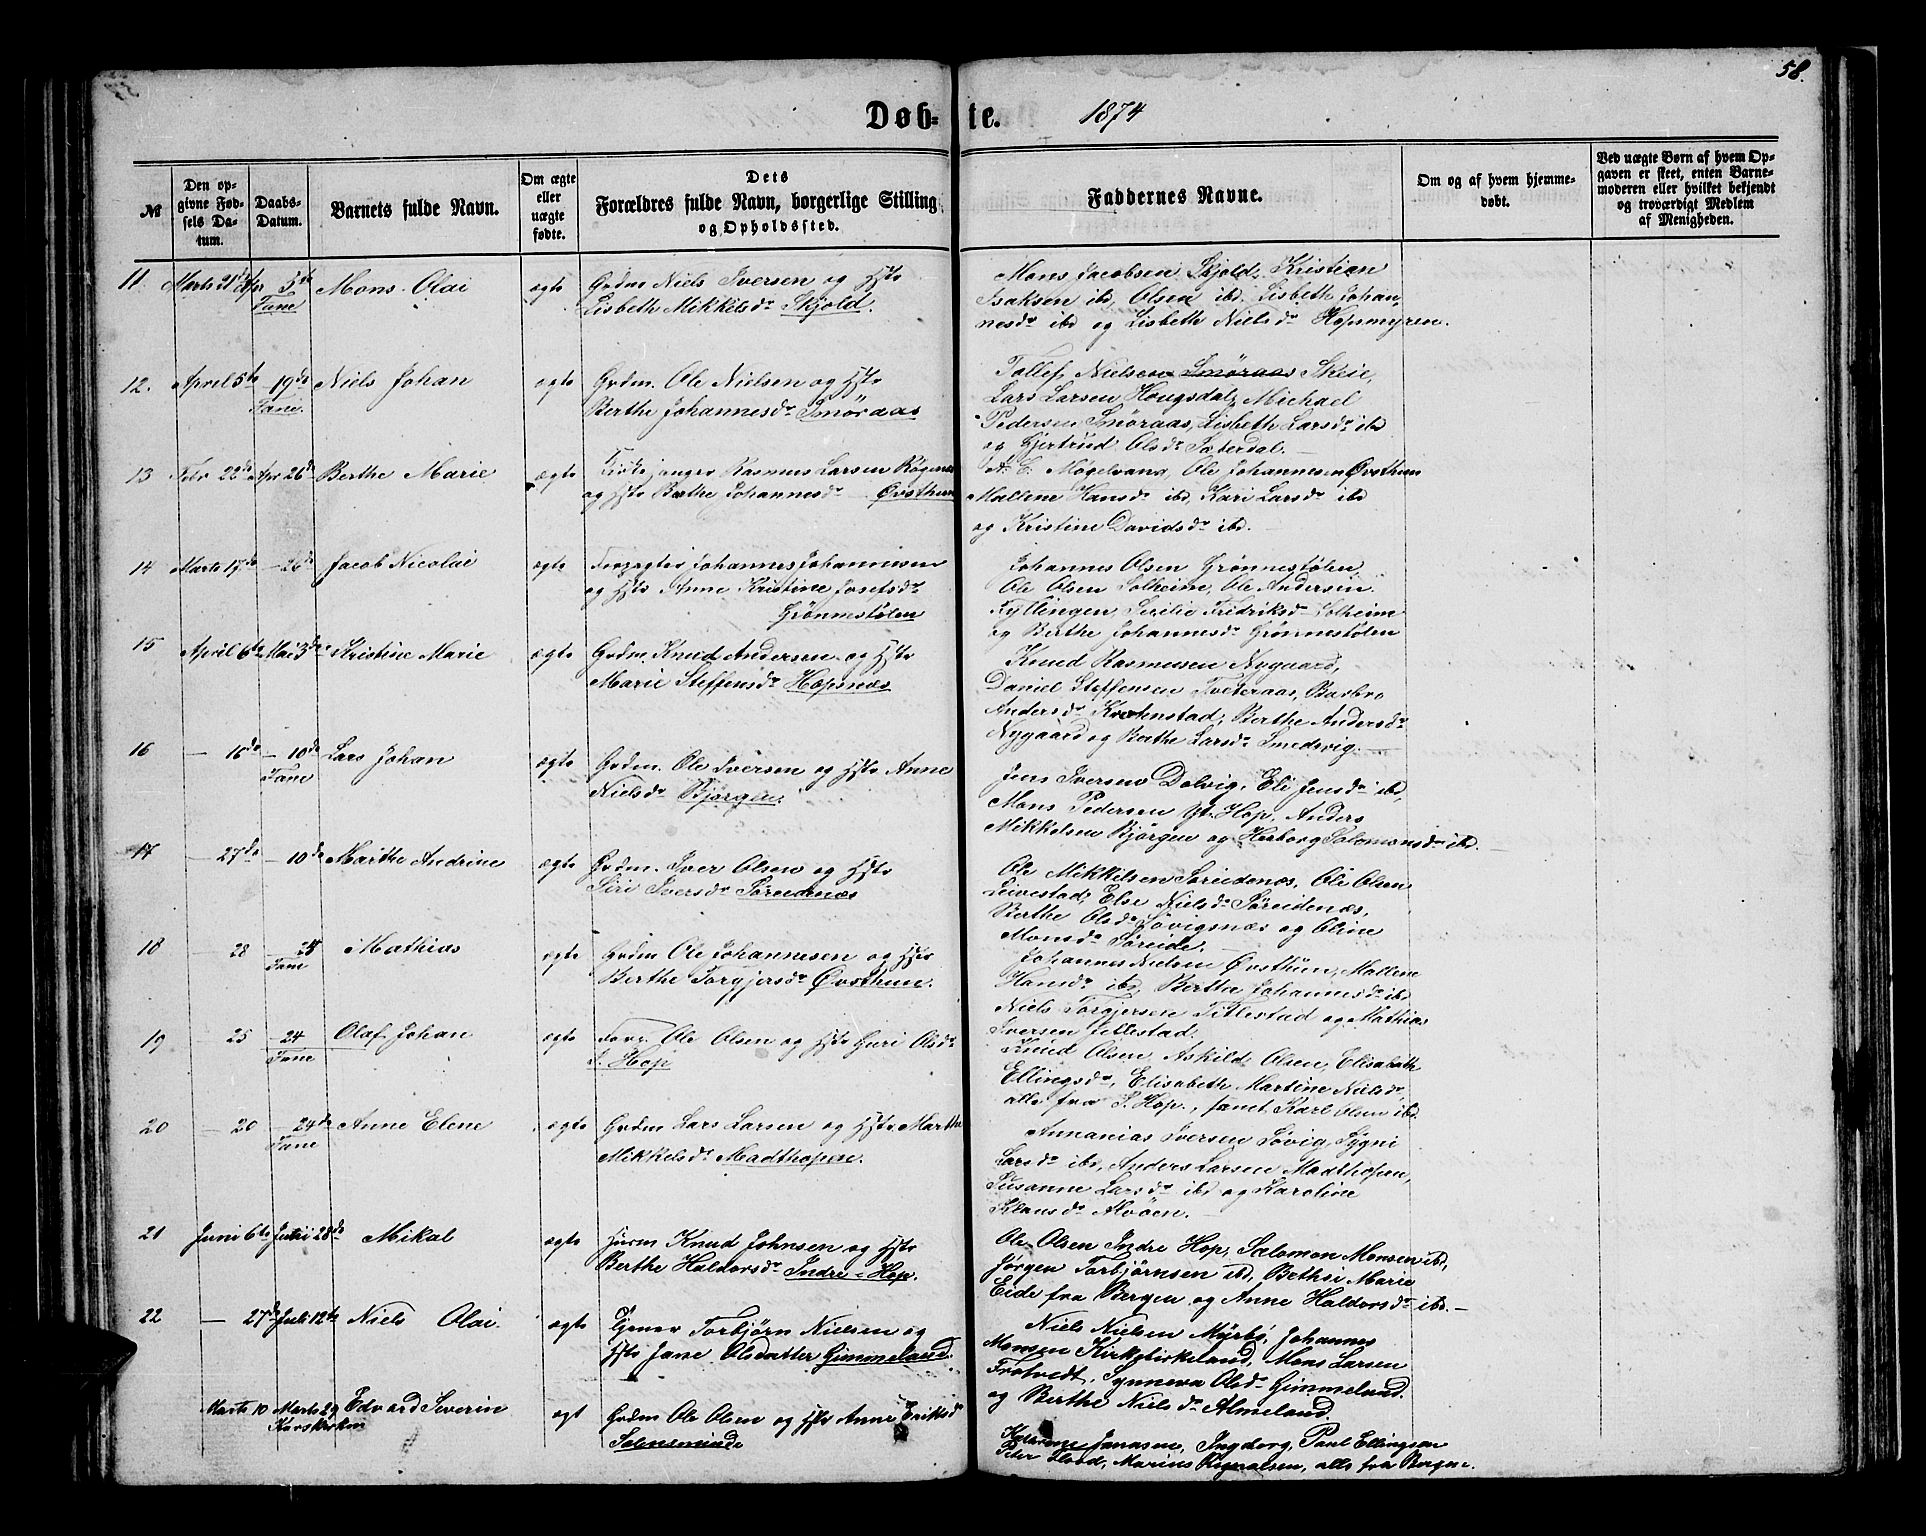 58.
Døb-te. 1874
№ | Den opgivne Fødsels Datum. | Daabs-Datum. | Barnets fulde Navn. | Om ægte eller uægte fødte. | Dets Forældres fulde Navn, borgerlige Stilling og Opholdssted. | Faddernes Navne. | Om og af hvem hjemmedøbt. | Ved uægte Børn af hvem Opgaven er skeet, enten Barnemoderen eller hvilket bekjendt og troværdigt Medlem af Menigheden.
11. Marts 21de Apr 5te Mons Olai ægte Grdm Niels Iversen og Hstr Mons Jacobsen Skjold, Kristian
Fane Lisbeth Mikkelsdr Skjold. Isaksen ibd, Olsen ibd. Lisbeth Johan
nesdr ibd og Lisbeth Nielsdr Hopsmyren.
12. April 5te - 19de Niels Johan ægte Grdm. Ole Nielsen og Hstr Tollef Nielsen Smøraas Skeie,
Fane. Berthe Johannesdr Smöraas Lars Larsen Hougsdal, Michael
Pedersen Smøraas, Lisbeth Larsdr ibd
og Gjertrud Olsdr Sæterdal.
13 Febr 22de Apr 26de Berthe Marie ægte Rasmus Larsen A. E. Mogelvang, Ole Johannesen Øvsthun
og Hstr Berthe Johannesdr Øvsthun Mallene Hansdr ibd, Kari Larsdr ibd
og Kristine Davidsdr ibd.
14 Marts 17de - 26de Jacob Nicolai ægte Forpagter Johannes Johannesen Johannes Olsen Grønnestølen,
og Hstr Anne Kristine Josefsdr Ole Olsen Solheim, Ole Andersen
Grönnestølen Kyllingen, Secilie Fredriksdr Solheim
og Berthe Johannesdr Grønnestølen
15 April 6te Mai 3de Kristine Marie ægte Grdm. Knud Andersen og Hstr Knud Rasmusen Nygaard,
Marie Steffensdr Hopsnæs Daniel Steffensen Tveteraas, Barbro
Andersdr Krohnstad, Berthe Andersdr
Nygaard og Berthe Larsdr Smedsvig.
16 - 16de - 10de Lars Johan ægte Grdm. Ole Iversen og Hstr Anne Jens Iversen Dolvig, Eli Jensdr ibd,
Fane Nielsdr Bjørgen. Mons Pedersen Yt. Hop, Anders
Mikkelsen Bjørgen og Herborg Salomonsdr ibd.
17 - 27de - 10de Marthe Andrine ægte Grdm. Iver Olsen og Hstr Ole Mikkelsen Søreidenæs, Ole Olsen
Siri Iversdr Søreidenæs Leirestad, Else Nielsdr Søreidenæs,
Berthe Olsdr Søvignæs og Oline
Monsdr Søreide.
18 - 28 - 24 Mathias ægte Grdm Ole Johannesen og Hstr Johannes Nielsen Øvsthun, Mallene
Fane Berthe Torgjersdr Øvsthun. Hansdr ibd, Berthe Johannesdr ibd
Niels Torgjersen Titlestad og Mathias
Iversen Titlestad.
19 25 24 Olaf Johan ægte Ole Olsen og Hstr Guri Olsdr Knud Olsen, Askild Olsen, Elisabeth
Fane I. Hop Ellingsdr, Elisabeth Martine Nielsdr,
alle fra I. Hop., samt Karl Olsen ibd.
20 - 20 - 24de Anne Elene ægte Grdm Lars Larsen og Hstr Marthe Annanias Iversen Søvig, Sygni
Fane Mikkelsdr Madthopen. Larsdr ibd, Anders Larsen Madthopen,
Susanne Larsdr ibd og Karoline
Klausdr Alvöen.
21 Juni 6te Juni 28de Mikal ægte Knud Johnsen og Hstr Ole Olsen Indre Hop, Salomon Monsen ibd,
Berthe Haldorsdr Indre-Hop. Jørgen Torbjørnsen ibd, Bethsi Marie
Eide fra Bergen og Anne Haldorsdr ibd.
22 - 27de Juli 12te Niels Olai. ægte Tjener Torbjørn Nielsen og Niels Nielsen Myrbö, Johannes
Hstr Jane Olsdatter Gimmeland. Monsen Kirkebirkeland, Mons Larsen
Trotvedt, Synneva Olsdr Gimmeland.
og Berthe Nielsdr Almeland.
Marts 10 Marts 29 Edvard Severin ægt Grdm Ole Olsen og Hstr Anne Eriksdr Jonasen, Ingborg, Paul Ellingsen
Korskirken Solensminde Peter Flood, Marius Rognalsen, alle fra Bergen.